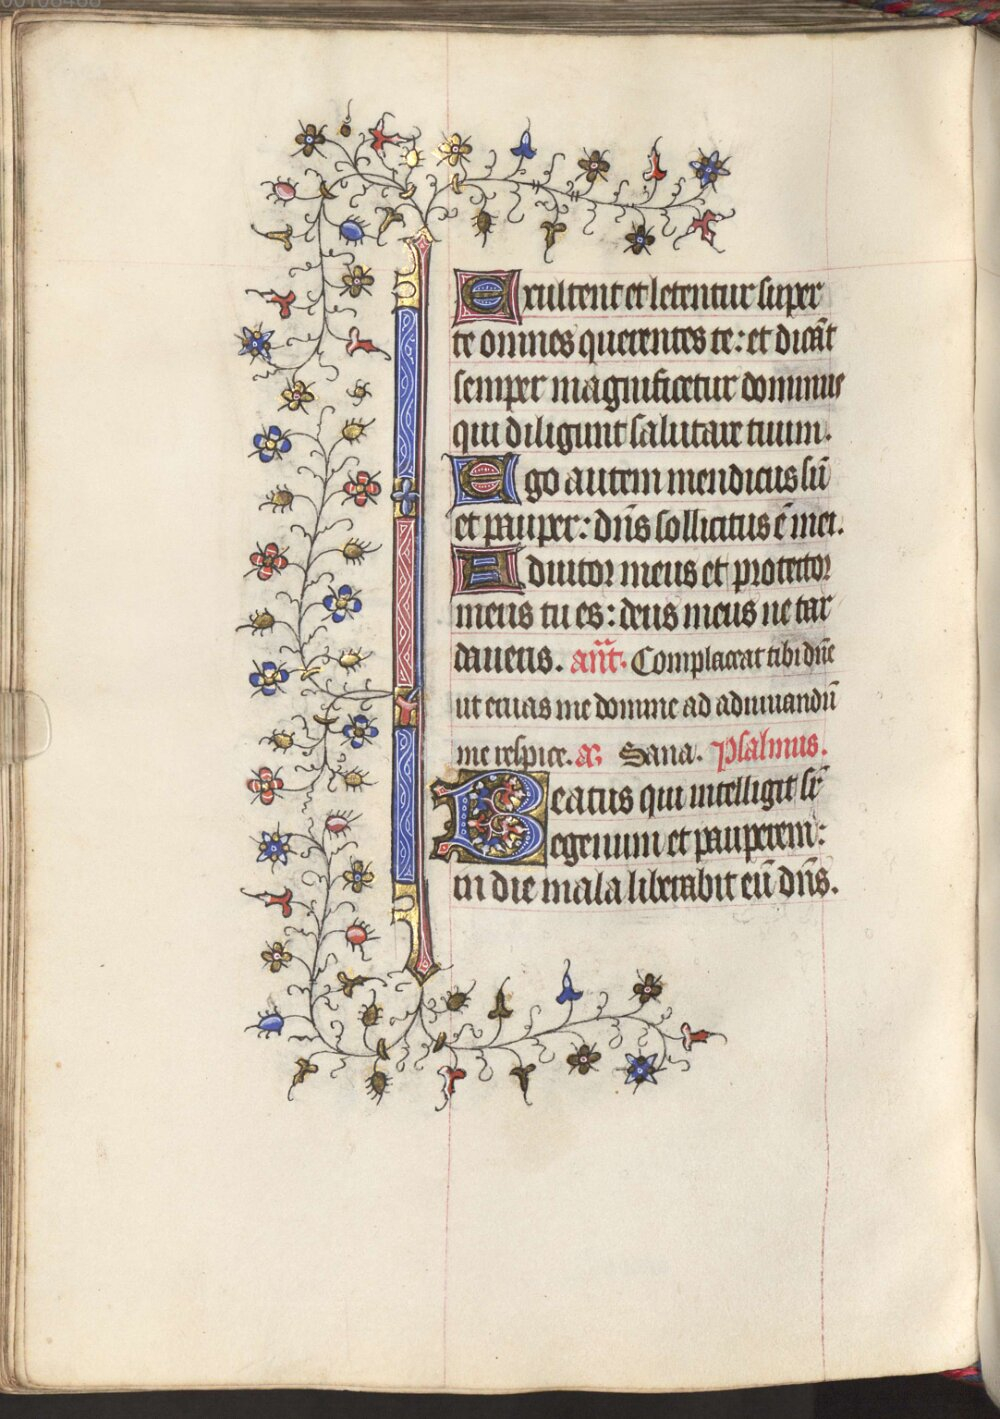 Exultent et letentur super
te omnes querentes te: et dicāt
semper magnificetur dominus
qui diligunt salutare tuum.
Ego autem mendicus sū
et pauper: dñs sollicitus ē mei.
Adiutor meus et protector
meus tu es: deus meus ne tar
daueris. añt. Complaceat tibi dñe
ut eruas me domine ad adiuuandū
me respice. a. Sana. Psalmus.
Beatus qui intelligit sr̄
egenum et pauperem:
in die mala liberabit eū dñs.